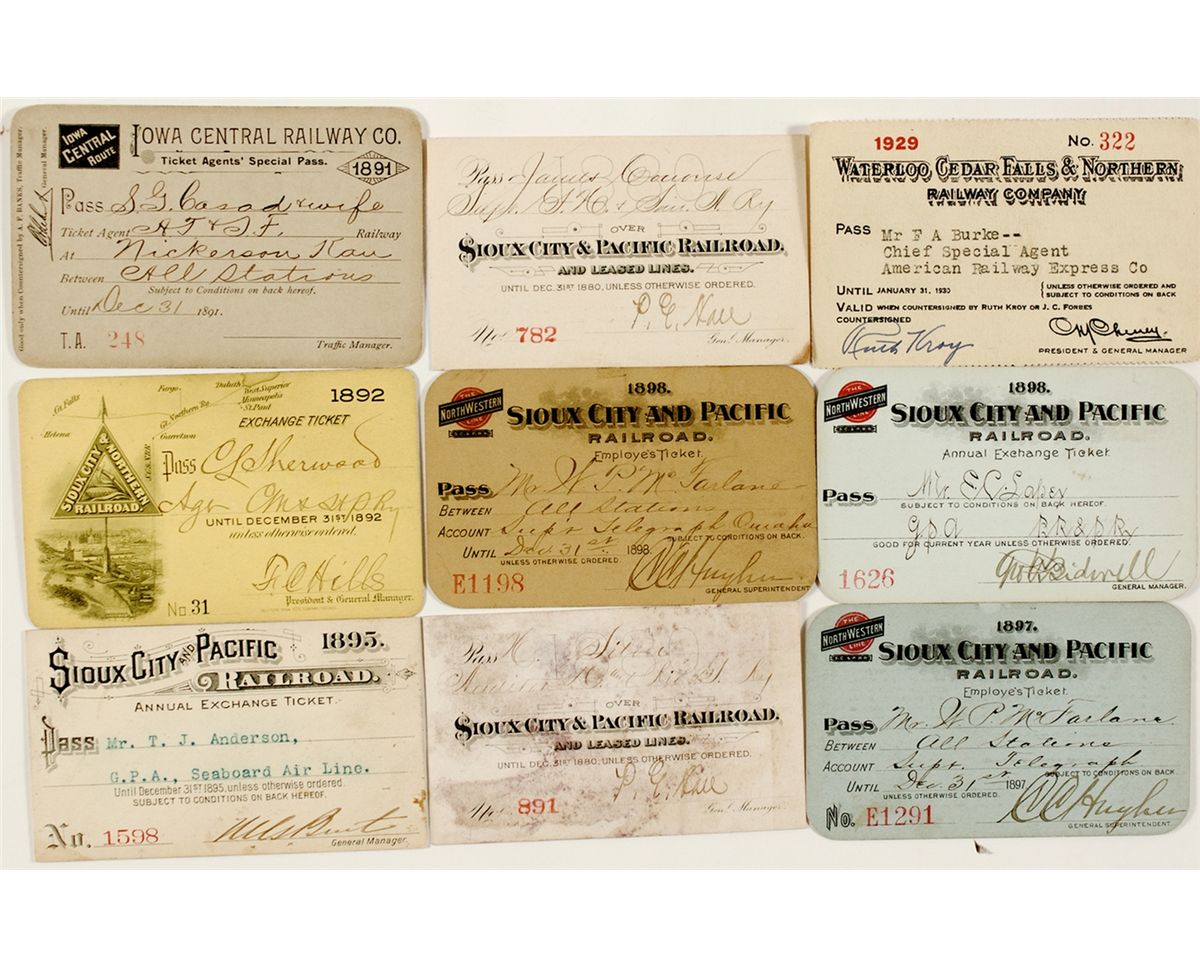 IOWA CENTRAL ROUTE
IOWA CENTRAL RAILWAY CO.
Ticket Agents' Special Pass.
1891
Pass S. G. Casad & wife
Ticket Agent A T & S. F. Railway
At Nickerson Kan
Between All Stations
Subject to Conditions on back hereof.
Until Dec 31 1891.
T.A. 248
Traffic Manager.
Good only when Countersigned by A. F. BANKS, Traffic Manager.
General Manager.
Pass James
Supt.
OVER
SIOUX CITY & PACIFIC RAILROAD,
AND LEASED LINES.
UNTIL DEC. 31ST 1880, UNLESS OTHERWISE ORDERED.
P. E. Hall
No. 782
Genl. Manager.
1929 No. 322
WATERLOO CEDAR FALLS & NORTHERN
RAILWAY COMPANY
PASS Mr F A Burke--
Chief Special Agent
American Railway Express Co
UNTIL JANUARY 31, 1930 {UNLESS OTHERWISE ORDERED AND
SUBJECT TO CONDITIONS ON BACK
VALID WHEN COUNTERSIGNED BY RUTH KROY OR J. C. FORBES
COUNTERSIGNED
Ruth Kroy
PRESIDENT & GENERAL MANAGER
Fargo. Duluth West Superior
Minneapolis
St. Paul
Gt. Falls
Gt. Northern Ry.
Helena
Garretson
1892
EXCHANGE TICKET
SIOUX CITY & NORTHERN RAILROAD.
Pass C L Sherwood
Agt C M & St P Ry
UNTIL DECEMBER 31ST 1892
unless otherwise ordered.
F. C. Hills
President & General Manager.
No 31
THE NORTHWESTERN LINE
1898.
SIOUX CITY AND PACIFIC
RAILROAD.
Employe's Ticket.
Pass Mr. W. P. McFarlane
BETWEEN All Stations
ACCOUNT Supt Telegraph Omaha
SUBJECT TO CONDITIONS ON BACK.
UNTIL Dec. 31st 1898.
UNLESS OTHERWISE ORDERED.
E1198
C C Hughes
GENERAL SUPERINTENDENT.
THE NORTHWESTERN LINE
1898.
SIOUX CITY AND PACIFIC
RAILROAD.
Annual Exchange Ticket.
Pass Mr. E. C.
SUBJECT TO CONDITIONS ON BACK HEREOF.
GOOD FOR CURRENT YEAR UNLESS OTHERWISE ORDERED.
1626
Geo F Bidwell
GENERAL MANAGER.
SIOUX CITY AND PACIFIC 1895.
RAILROAD.
ANNUAL EXCHANGE TICKET.
Pass Mr. T. J. Anderson,
G.P.A., Seaboard Air Line.
Until December 31ST 1895, unless otherwise ordered.
SUBJECT TO CONDITIONS ON BACK HEREOF.
No. 1598
General Manager.
Pass
OVER
SIOUX CITY & PACIFIC RAILROAD.
AND LEASED LINES.
UNTIL DEC. 31ST 1880, UNLESS OTHERWISE ORDERED.
P. E. Hall
No. 891
Genl. Manager.
THE NORTHWESTERN LINE
1897.
SIOUX CITY AND PACIFIC
RAILROAD.
Employe's Ticket.
Pass Mr. W. P. McFarlane.
BETWEEN All Stations
ACCOUNT Supt. Telegraph
SUBJECT TO CONDITIONS ON BACK.
UNTIL Dec 31st 1897
UNLESS OTHERWISE ORDERED.
No. E1291
C C Hughes
GENERAL SUPERINTENDENT.